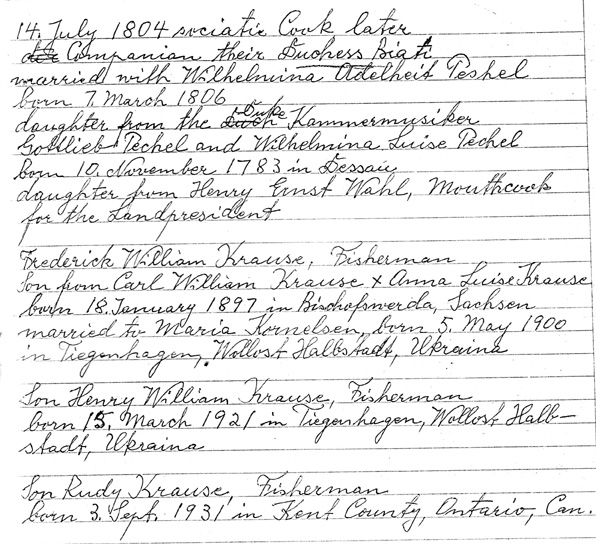 14. July 1804 sociatic Cook later
Companian their Duchess Biati
married with Wilhelmina Adelheit Peshel
born 7. March 1806
daughter from the Duke Kammermusiker
Gottlieb Pechel and Wilhelmina Luise Pechel
born 10. November 1783 in Dessau
daughter from Henry Ernst Wahl, Mouthcook
for the Landpresident
Frederick William Krause, Fisherman
Son from Carl William Krause x Anna Luise Krause
born 18. January 1897 in Bischofswerda, Sachsen
married to Maria Kornelsen, born 5. May 1900
in Tiegenhagen, Wollost Halbstadt, Ukraina
Son Henry William Krause, Fisherman
born 15. March 1921 in Tiegenhagen, Wollost Halb-
stadt, Ukraina
Son Rudy Krause, Fisherman
born 3. Sept. 1931 in Kent County, Ontario, Can.